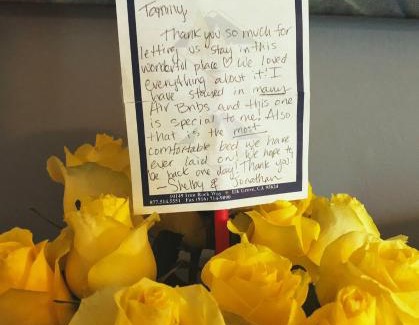 Tammy,
Thank you so much for
letting us stay in this
wonderful place ♡ We loved
everything about it! I
have stayed in many
Air Bnbs and this one
is special to me! Also
that is the most
comfortable bed we have
ever laid on! We hope to
be back one day! Thank you!
— Shelby & Jonathan
Elk Grove, CA